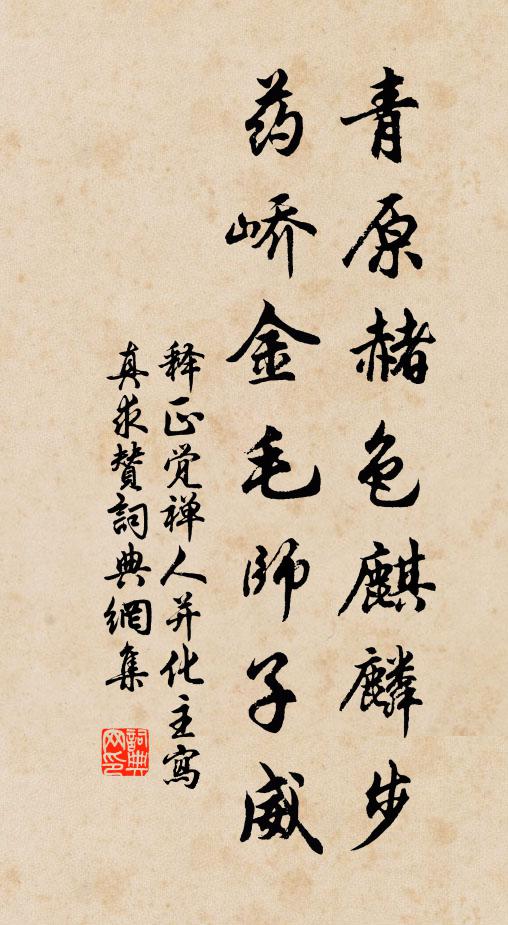 青原赭色麒麟步
药峤金毛师子威
释正觉禅人并化主写
真求赞词典网集
词典
网印